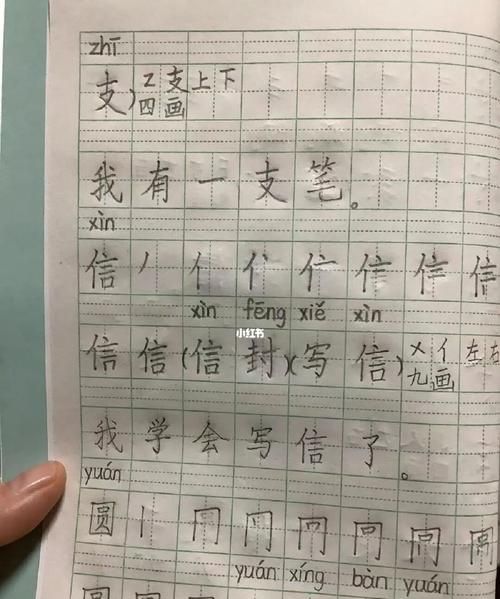 zhī
支)Z支上下
四画
我有一支笔。
xìn
信丿亻亻信信信信
xìn fēng xiě xìn
信信(信封)(写信)X亻左右
九画
小红书
我学会写信了。
yuán
圆丨冂
yuán xíng bàn yuán